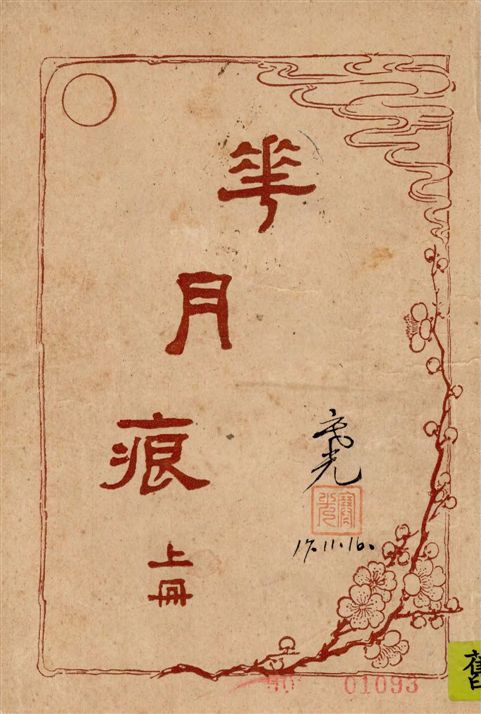 華月痕
上冊
17.11.16.
01093
舊